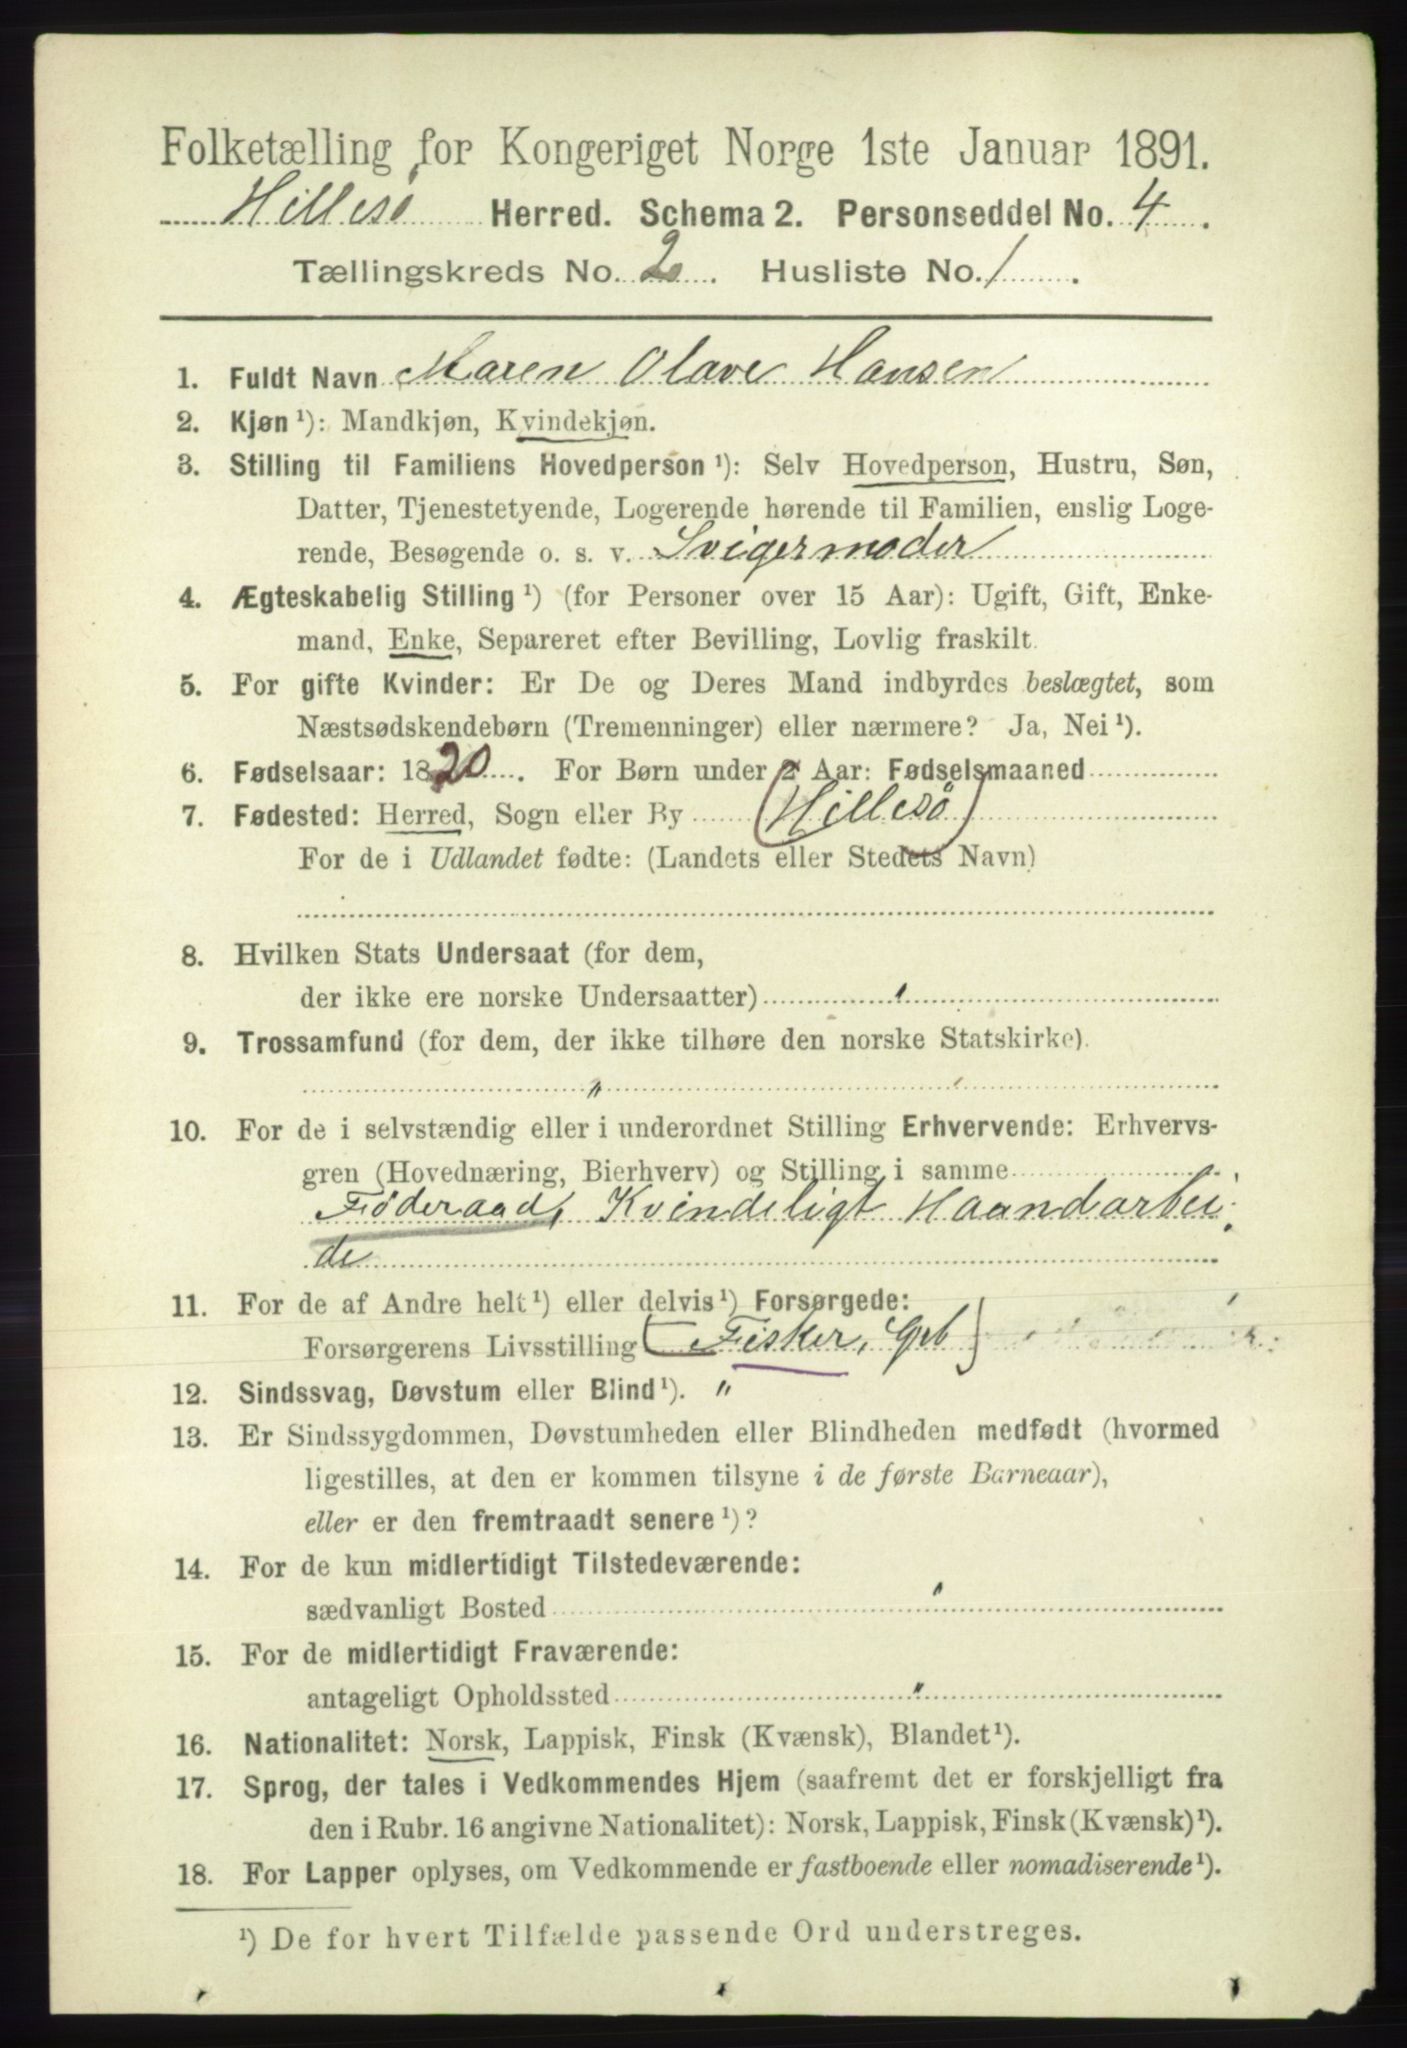 Folketælling for Kongeriget Norge 1ste Januar 1891.
Hillesö Herred. Schema 2. Personseddel No. 4.
Tællingskreds No. 2. Husliste No. 1.
1. Fuldt Navn Maren Olave Hansen
2. Kjøn ¹): Mandkjøn, Kvindekjøn.
3. Stilling til Familiens Hovedperson ¹): Selv Hovedperson, Hustru, Søn,
Datter, Tjenestetyende, Logerende hørende til Familien, enslig Loge-
rende, Besøgende o. s. v. Svigermoder
4. Ægteskabelig Stilling ¹) (for Personer over 15 Aar): Ugift, Gift, Enke-
mand, Enke, Separeret efter Bevilling, Lovlig fraskilt.
5. For gifte Kvinder: Er De og Deres Mand indbyrdes beslægtet, som
Næstsødskendebørn (Tremenninger) eller nærmere? Ja, Nei ¹).
6. Fødselsaar: 1820. For Børn under 2 Aar: Fødselsmaaned
7. Fødested: Herred, Sogn eller By (Hillesö)
For de i Udlandet fødte: (Landets eller Stedets Navn)
8. Hvilken Stats Undersaat (for dem,
der ikke ere norske Undersaatter)
9. Trossamfund (for dem, der ikke tilhøre den norske Statskirke).
"
10. For de i selvstændig eller i underordnet Stilling Erhvervende: Erhvervs-
gren (Hovednæring, Bierhverv) og Stilling i samme
Föderaad, Kvindeligt Haandarbei
de
11. For de af Andre helt ¹) eller delvis ¹) Forsørgede:
Forsørgerens Livsstilling (Fisker, Grb)
12. Sindssvag, Døvstum eller Blind ¹). "
13. Er Sindssygdommen, Døvstumheden eller Blindheden medfødt (hvormed
ligestilles, at den er kommen tilsyne i de første Barneaar),
eller er den fremtraadt senere ¹)?
14. For de kun midlertidigt Tilstedeværende:
sædvanligt Bosted "
15. For de midlertidigt Fraværende:
antageligt Opholdssted "
16. Nationalitet: Norsk, Lappisk, Finsk (Kvænsk), Blandet ¹).
17. Sprog, der tales i Vedkommendes Hjem (saafremt det er forskjelligt fra
den i Rubr. 16 angivne Nationalitet): Norsk, Lappisk, Finsk (Kvænsk) ¹).
18. For Lapper oplyses, om Vedkommende er fastboende eller nomadiserende ¹).
¹) De for hvert Tilfælde passende Ord understreges.